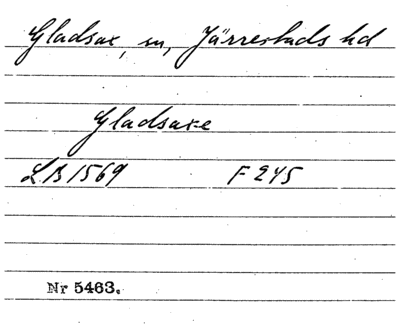 Gladsax, sn, Järrestads hd
Gladsaxe
LB 1569 F 245
Nr 5463.